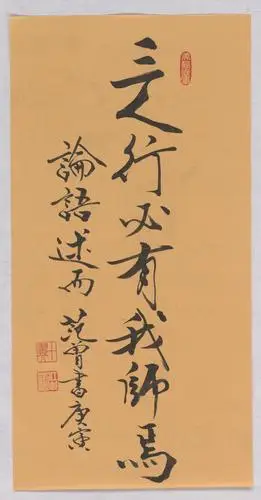 三人行必有我師焉
論語述而 范曾書庚寅